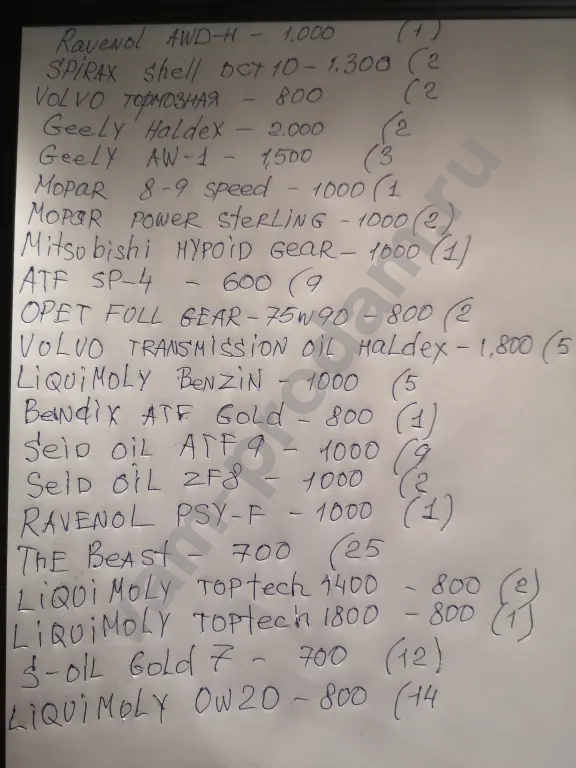 Ravenol AWD-H - 1.000 (1)
SPIRAX Shell DCT 10 - 1.300 (2
VOLVO ТОРМОЗНАЯ - 800 (2
GeeLY HaLdex - 2.000 (2
GeeLY AW-1 - 1,500 (3
MOPAR 8-9 speed - 1000 (1
MOPAR POWER SteRLING - 1000 (2)
Mitsobishi HYPOID GeaR - 1000 (1)
ATF SP-4 - 600 (9
OPET FULL GEAR - 75W90 - 800 (2
VOLVO TRANSMISSION OIL HaLdex - 1,800 (5
LiQUiMOLY BeNZiN - 1000 (5
BeNdiX ATF GOLd - 800 (1)
SeiD OiL ATF 9 - 1000 (9
SeiD OiL ZF8 - 1000 (2
RAVENOL PSY-F - 1000 (1)
ThE BeaSt - 700 (25
LiQUi MOLY TOPtech 1400 - 800 (2)
LiQUiMOLY TOPtech 1800 - 800 (1)
S-OIL GOLd 7 - 700 (12)
LiQUiMOLY OW20 - 800 (14
vam-prodam.ru